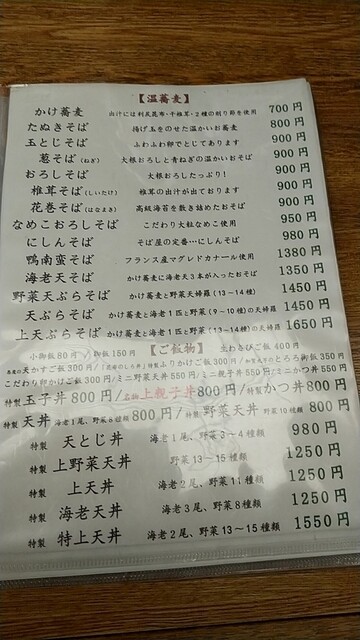 【温蕎麦】
かけ蕎麦 出汁には利尻昆布・干椎茸・2種の削り節を使用 700円
たぬきそば 揚げ玉をのせた温かいお蕎麦 800円
玉とじそば ふわふわ卵でとじてあります 900円
葱そば(ねぎ) 大根おろしと青ねぎの温かいおそば 900円
おろしそば 大根おろしたっぷり! 900円
椎茸そば(しいたけ) 椎茸の出汁が出ております 900円
花巻そば(はなまき) 高級海苔を敷き詰めたおそば 900円
なめこおろしそば こだわり大粒なめこ使用 950円
にしんそば そば屋の定番…にしんそば 980円
鴨南蛮そば フランス産マグレドカナール使用 1380円
海老天そば かけ蕎麦に海老天3本が入ったおそば 1350円
野菜天ぷらそば かけ蕎麦と野菜天婦羅(13~14種) 1450円
天ぷらそば かけ蕎麦と海老1匹と野菜(9~10種)の天婦羅 1450円
上天ぷらそば かけ蕎麦と海老1匹と野菜(13~14種)の天婦羅 1650円
小御飯80円 / 御飯150円 【ご飯物】 土わさびご飯400円
天かすご飯300円 りかけご飯300円 とろろ御飯350円
こだわり卵かけご飯300円/ミニ野菜天丼550円/ミニ親子丼550円/ミニかつ丼550円
特製 玉子丼800円/ 上親子丼800円/特製かつ丼800円
特製 天丼 海老1尾、野菜8種類 800円/特製 野菜天丼 野菜10種類 800円
特製 天とじ丼 海老1尾、野菜3~4種類 980円
特製 上野菜天丼 野菜13~15種類 1250円
特製 上天丼 海老2尾、野菜11種類 1250円
特製 海老天丼 海老3尾、野菜8種類 1250円
特製 特上天丼 海老2尾、野菜13~15種類 1550円